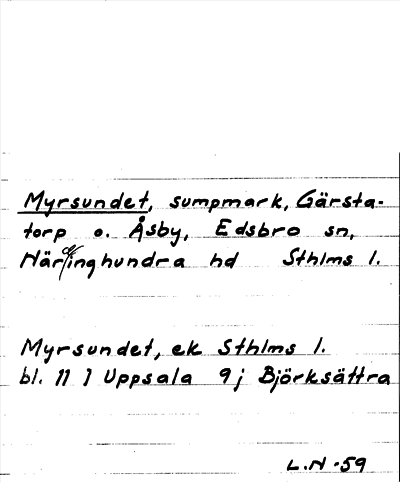 Myrsundet, sumpmark, Gärsta-
torp o. Åsby, Edsbro sn,
Närdinghundra hd Sthlms l.
Myrsundet, ek Sthlms l.
bl. 11 I Uppsala 9j Björksättra
L.N -59